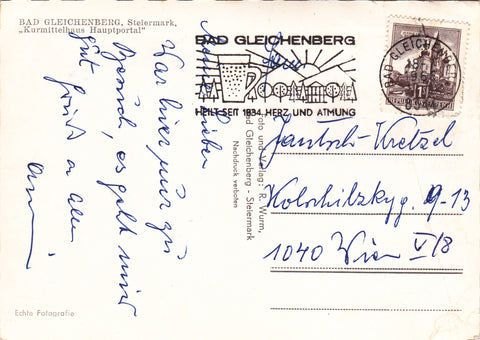 BAD GLEICHENBERG, Steiermark,
„Kurmittelhaus Hauptportal"
War hier nur zu
Besuch, es geht mir
gut
Gruß an Alle
BAD GLEICHENBERG
HEILT SEIT 1834, HERZ UND ATMUNG
BAD GLEICHENBERG
Foto und Verlag: R. Wurm,
Bad Gleichenberg - Steiermark
Nachdruck verboten
Jantsch-Kretzel
Kolschitzkyg. 9-13
1040 Wien V/8
Echte Fotografie